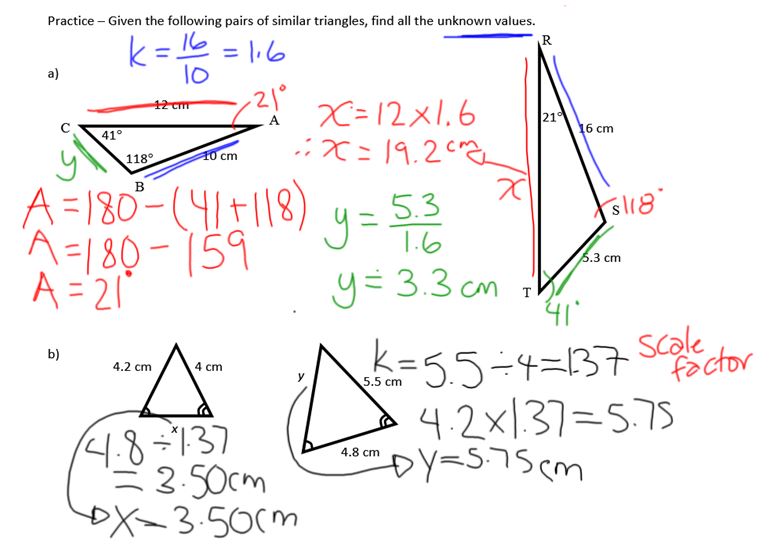 Practice – Given the following pairs of similar triangles, find all the unknown values.
k = 16/10 = 1.6
a)
12 cm
21°
C
A
41°
118°
10 cm
B
y
A = 180 - (41 + 118)
A = 180 - 159
A = 21°
x = 12 × 1.6
∴ x = 19.2 cm
y = 5.3/1.6
y = 3.3 cm
R
21°
16 cm
x
S 118°
5.3 cm
T
41°
b)
4.2 cm
4 cm
x
4.8 ÷ 1.37
= 3.50cm
x = 3.50cm
y
5.5 cm
4.8 cm
k = 5.5 ÷ 4 = 1.37
scale factor
4.2 × 1.37 = 5.75
y = 5.75cm